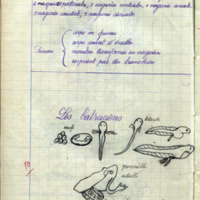 2 nageoires pectorales, 2 nageoires ventrales, 1 nageoire anale
1 nageoire caudale, 2 nageoires dorsales
corps en fuseau
corps couvert d'écailles
membres transformés en nageoires
respirent par des branchies
Les batraciens
œufs
têtards
grenouille
adulte